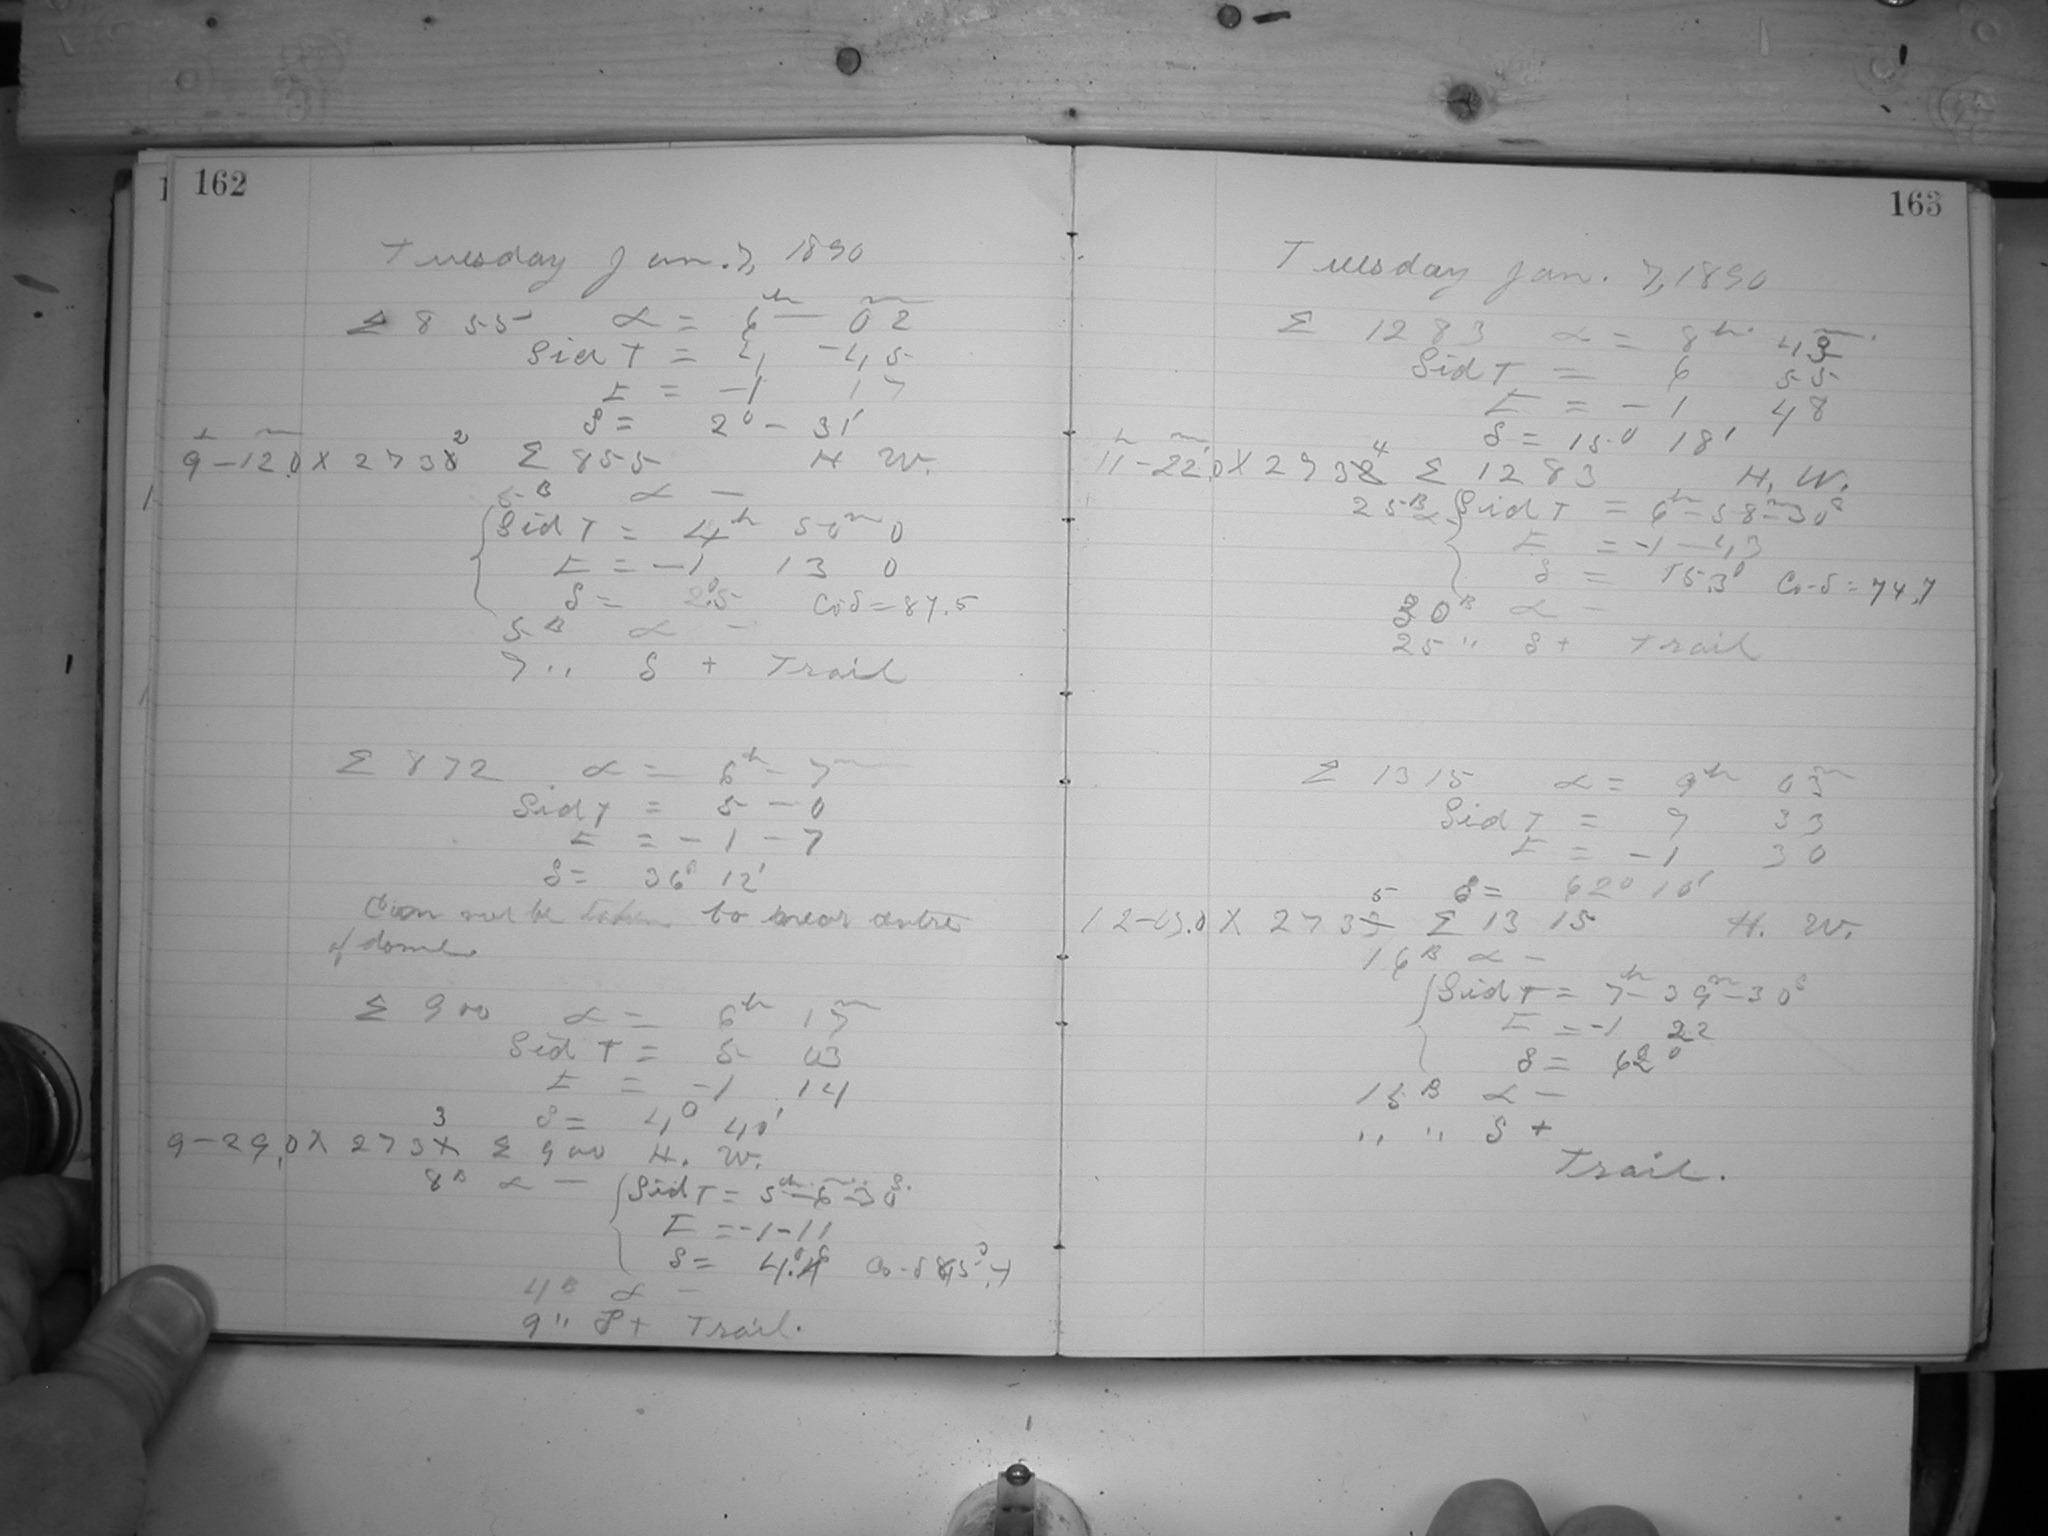 162
Tuesday Jan. 7, 1890
Σ 855 α = 6h — 02m
Sid T = 4 — 45
E = —1 17
δ = 2° — 31'
9h—12.0m X 2732 Σ 855 H W.
5B α —
Sid T = 4h 50m 0
E = —1 13 0
δ = 2°.5 Co δ = 87.5
5B α —
7 " δ + Trail
Σ 872 α = 6h — 7m
Sid T = 5 — 0
E = — 1 — 7
δ = 36° 12'
not be taken to near centre
of dome
Σ 900 α = 6h 17m
Sid T = 5 03
E = —1 14
δ = 4° 40'
9—29.0 X 2733 Σ 900 H. W.
8B α — Sid T = 5h—6m—30s.
E = —1—11
δ = 4°.
4B α —
9 " δ + Trail.
163
Tuesday Jan. 7, 1890
Σ 1283 α = 8h 43m
Sid T = 6 55
E = — 1 48
δ = 15° 18'
11h—22.0m X 2734 Σ 1283 H. W.
25B α — Sid T = 6h—58m—30s
E = —1—43
δ = 15.3° Co-δ = 74.7
30B α —
25 " δ + Trail
Σ 1315 α = 9h 03m
Sid T = 7 33
E = —1 30
δ = 62° 10'
12—03.0 X 2735 Σ 1315 H. W.
16B α —
Sid T = 7h—39m—30s
E = —1 22
δ = 62°
15B α —
" " δ +
Trail.